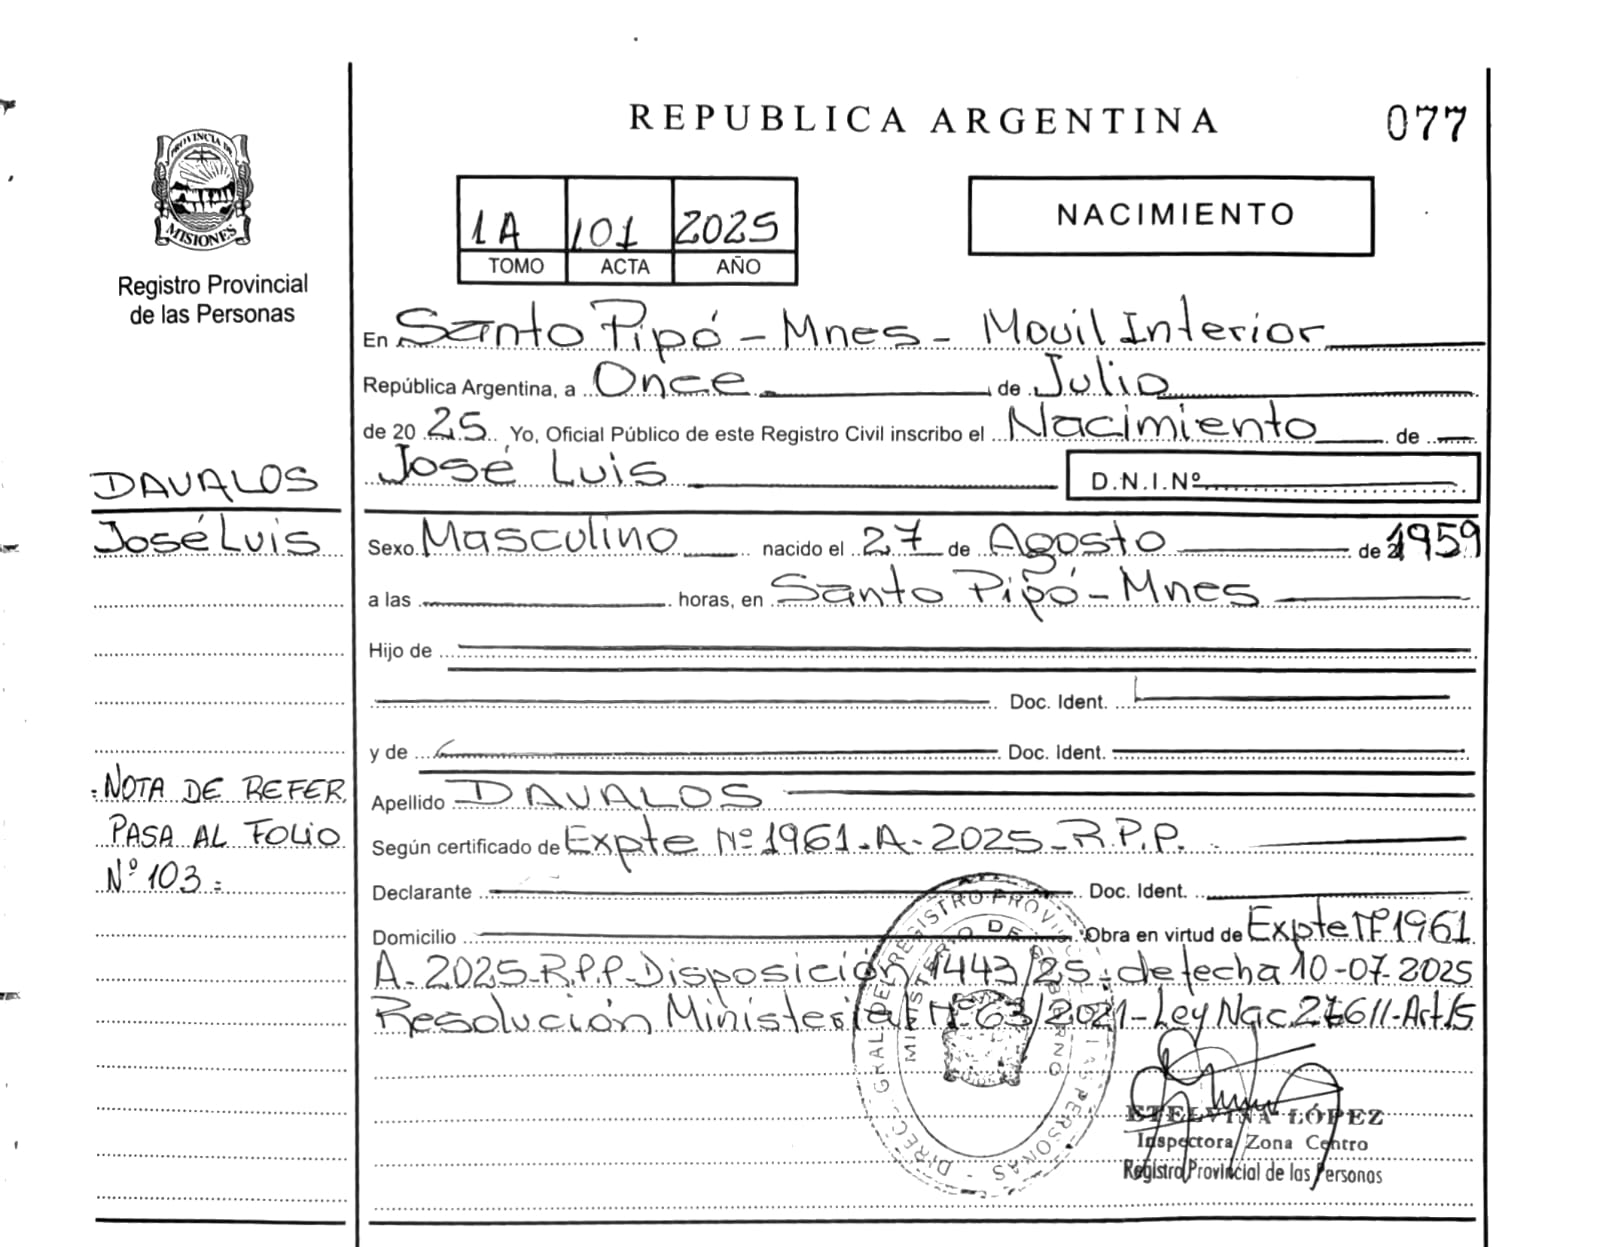 REPUBLICA ARGENTINA
077
PROVINCIA DE
MISIONES
Registro Provincial
de las Personas
1A 101 2025
TOMO ACTA AÑO
NACIMIENTO
En Santo Pipó - Mnes - Movil Interior
República Argentina, a Once de Julio
de 2025 Yo, Oficial Público de este Registro Civil inscribo el Nacimiento de
José Luis
D.N.I.Nº
DAVALOS
José Luis
Sexo Masculino nacido el 27 de Agosto de 1959
a las horas, en Santo Pipó - Mnes
Hijo de
Doc. Ident.
y de Doc. Ident.
:NOTA DE REFER
PASA AL FOLIO
Nº 103:
Apellido DAVALOS
Según certificado de Expte Nº 1961-A-2025-R.P.P.
Declarante Doc. Ident.
Domicilio Obra en virtud de Expte Nº 1961
A-2025-R.P.P-Disposición 1443/25-de fecha 10-07-2025
Resolución Ministerial Nº 63/2021-Ley Nac 27611-Art 15
DIREC. GRAL. DEL REGISTRO PROVINCIAL DE LAS PERSONAS
MINISTERIO DE GOBIERNO
ETELVINA LÓPEZ
Inspectora Zona Centro
Registro Provincial de las Personas